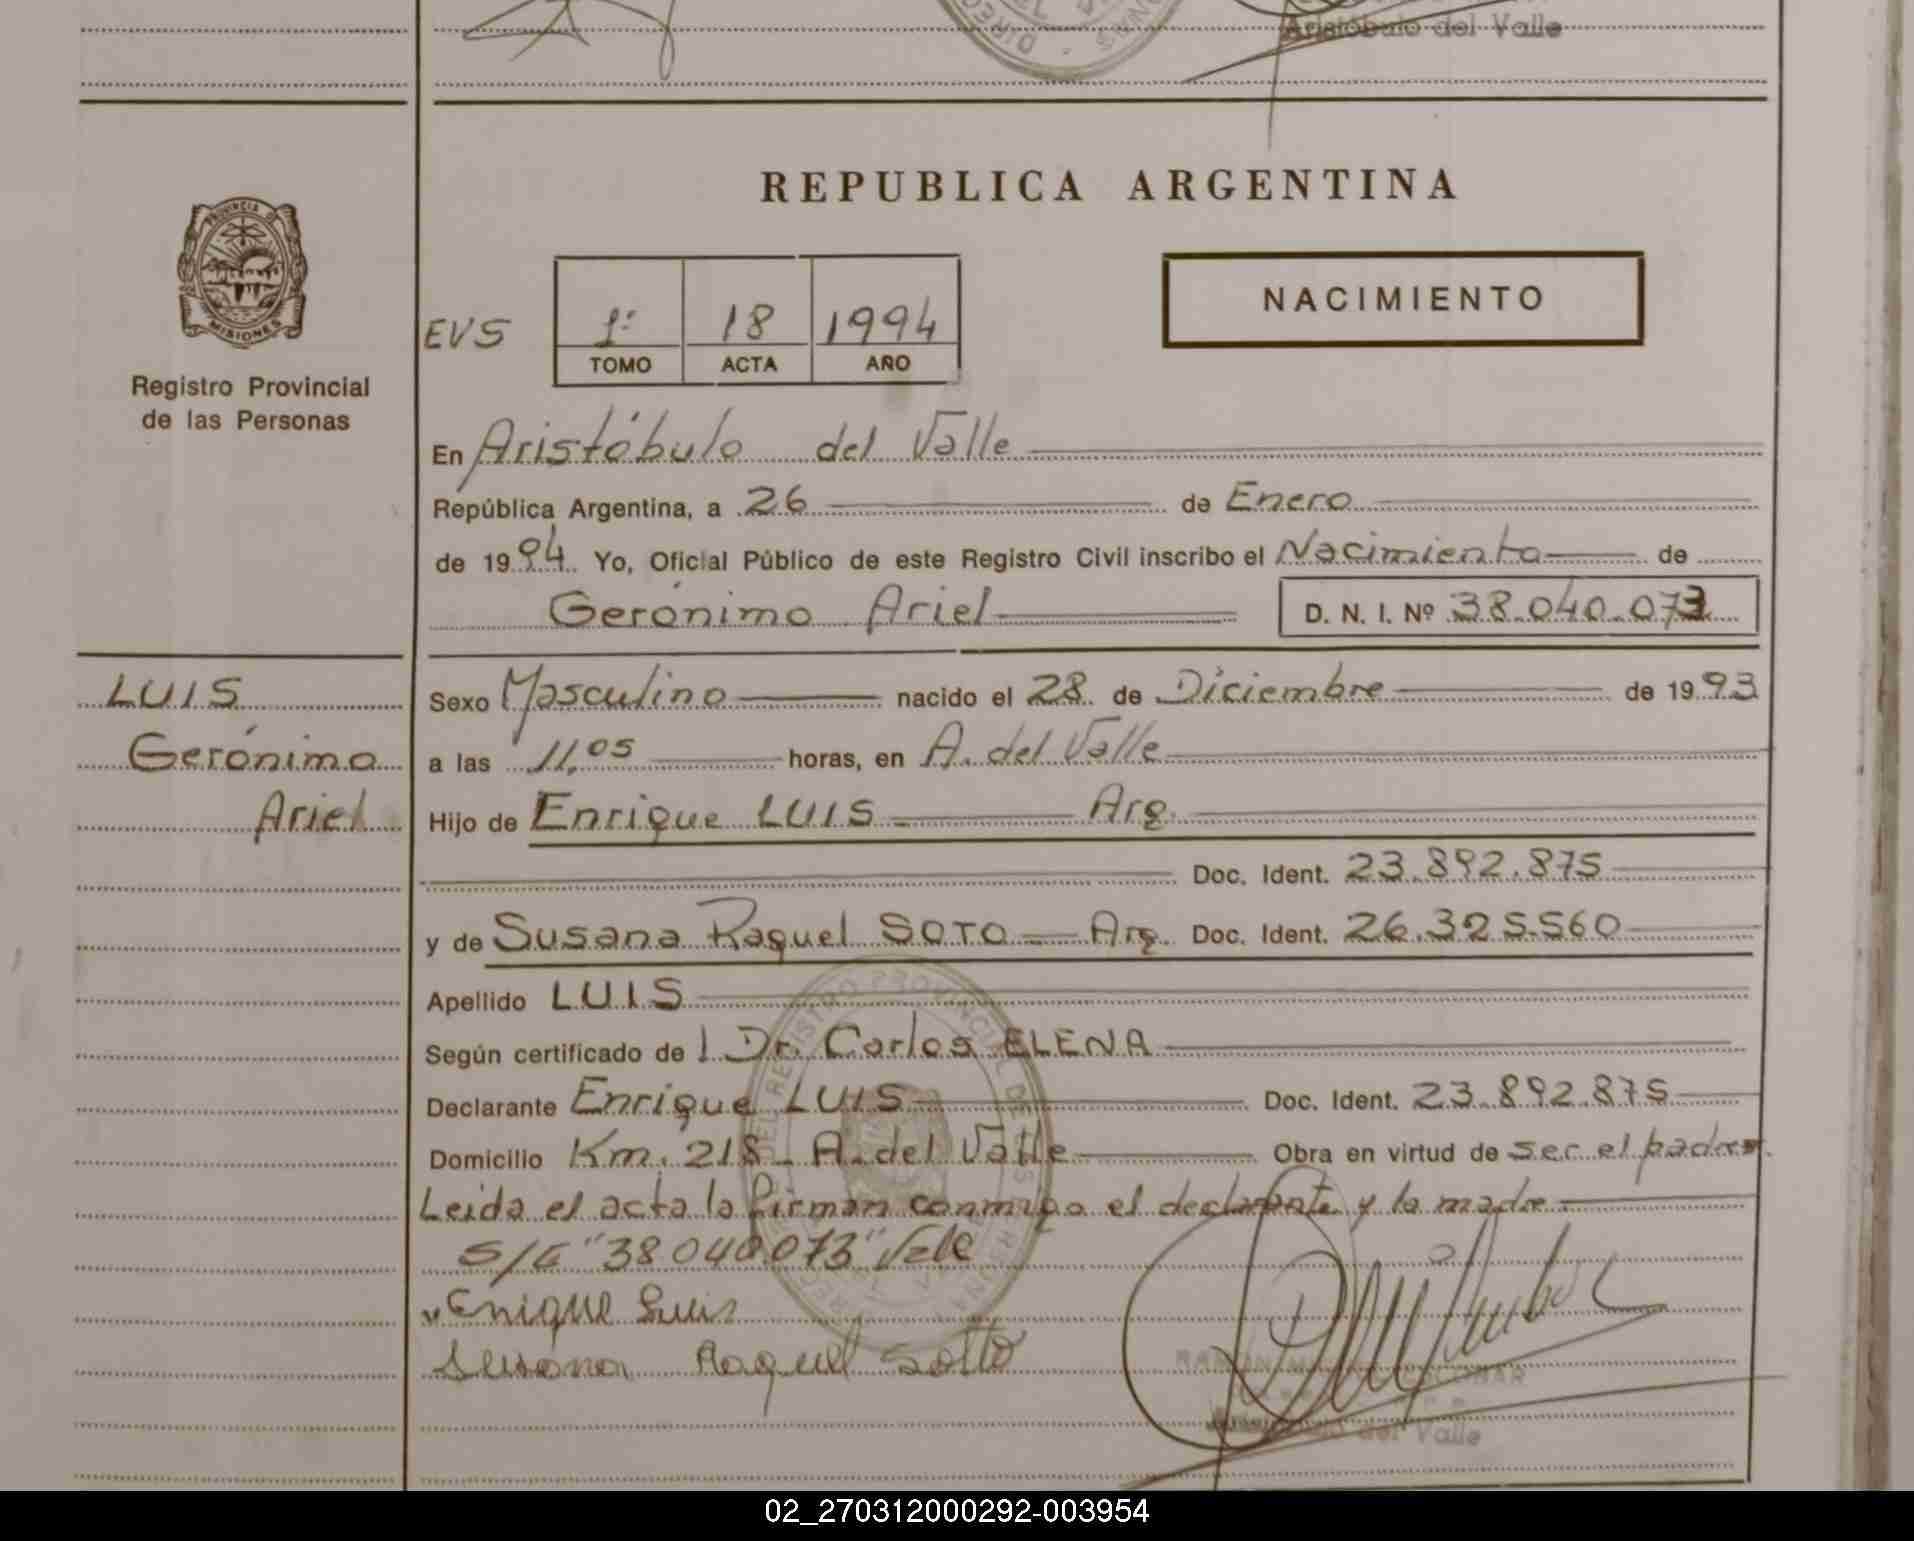 Aristóbulo del Valle
REPUBLICA ARGENTINA
PROVINCIA D
MISIONES
Registro Provincial
de las Personas
NACIMIENTO
EVS
1º 18 1994
TOMO ACTA AÑO
En Aristóbulo del Valle
República Argentina, a 26 de Enero
de 1994 Yo, Oficial Público de este Registro Civil inscribo el Nacimiento de
Gerónimo Ariel D. N. I. Nº 38.040.073
LUIS
Gerónimo
Ariel
Sexo Masculino nacido el 28 de Diciembre de 1993
a las 11,05 horas, en A. del Valle
Hijo de Enrique LUIS Arg.
Doc. Ident. 23.892.875
y de Susana Raquel SOTO Arg. Doc. Ident. 26.325.560
Apellido LUIS
Según certificado de Dr. Carlos ELENA
Declarante Enrique LUIS Doc. Ident. 23.892.875
Domicilio Km. 218 A. del Valle Obra en virtud de ser el padre.
Leida el acta la firman conmigo el declarante y la madre
"38.040.073" Vale
Enrique Luis
Susana Raquel Sotto
ESCOBAR
del Valle
02_270312000292-003954